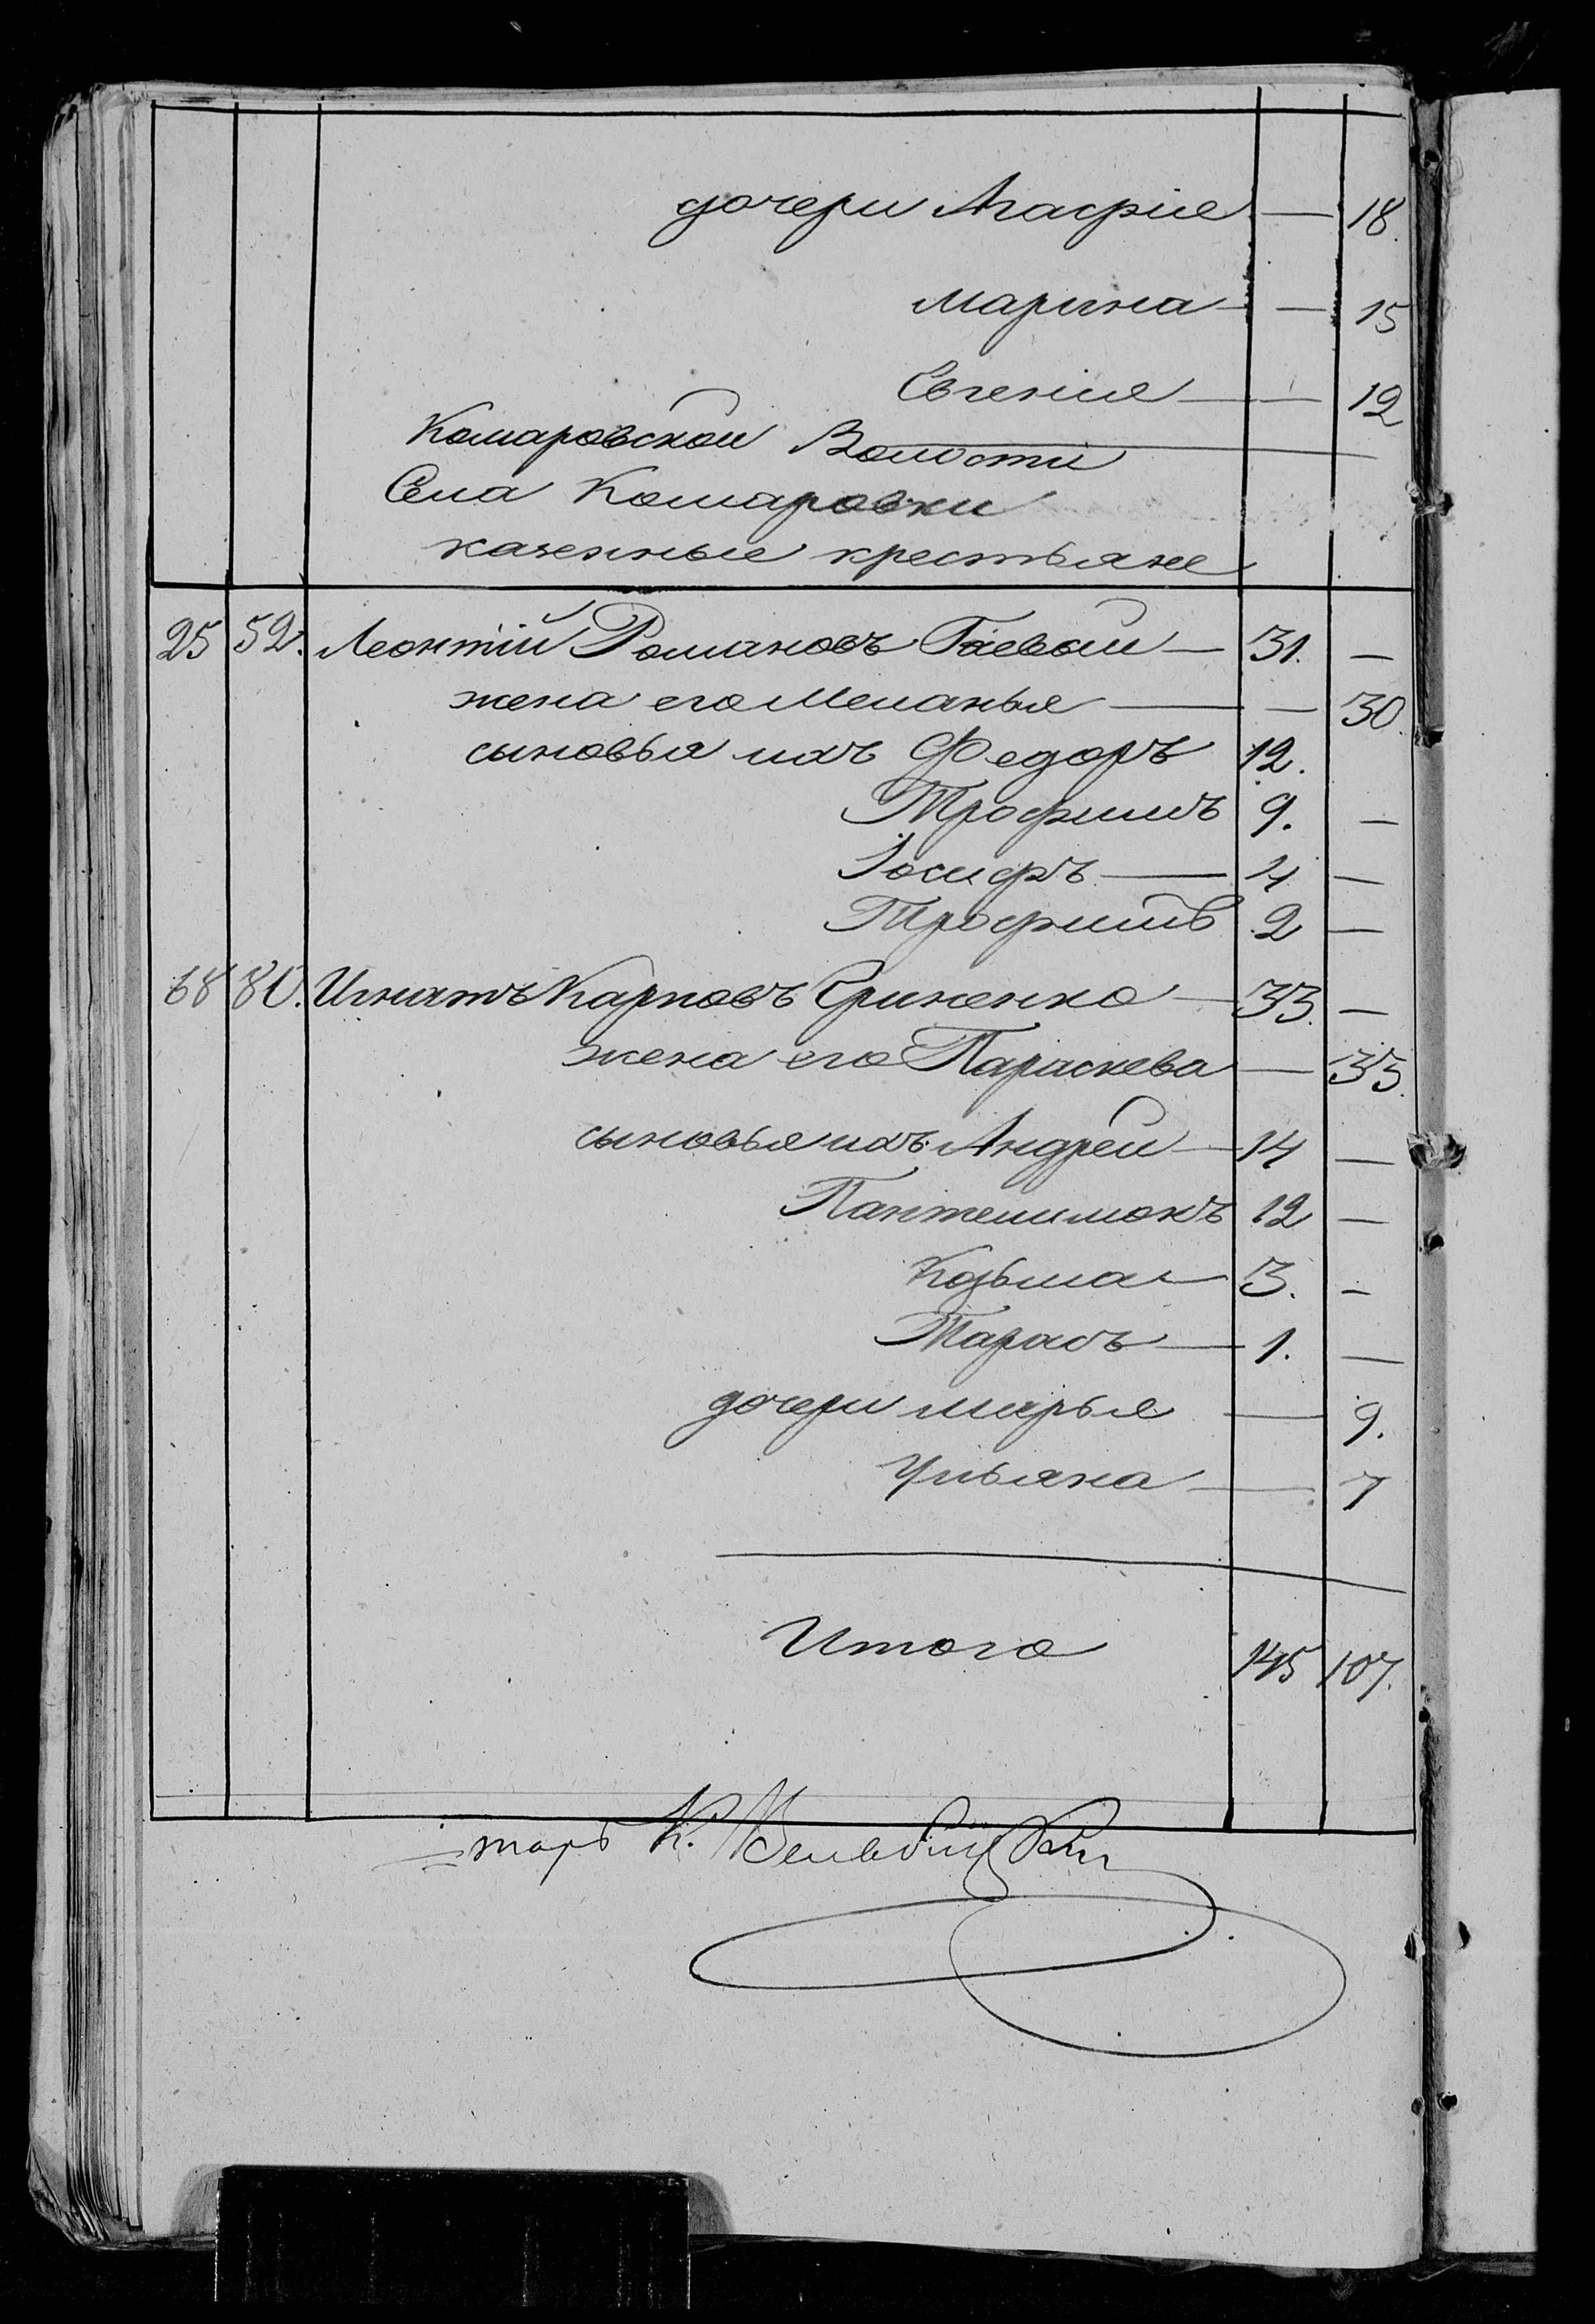 дочери Агафія — 18.
Марина — 15
Евгенія — 12
Комаровской Волости
Села Комаровки
казенные крестьяне
25 52. Леонтій Романовъ Гаевой — 31. —
жена его Меланья — — 30.
сыновья ихъ Федоръ 12.
Трофимъ 9. —
Іосифъ — 4 —
Трофимъ 2 —
68 80. Игнатъ Карповъ Гриненко — 33. —
жена его Параскева — 33.
сыновья ихъ Андрей — 14 —
Пантелимонъ 12 —
Козьма — 3. —
Тарасъ — 1. —
дочери Марья — 9.
Ульяна — 7
Итого 145 107.
тарь К.